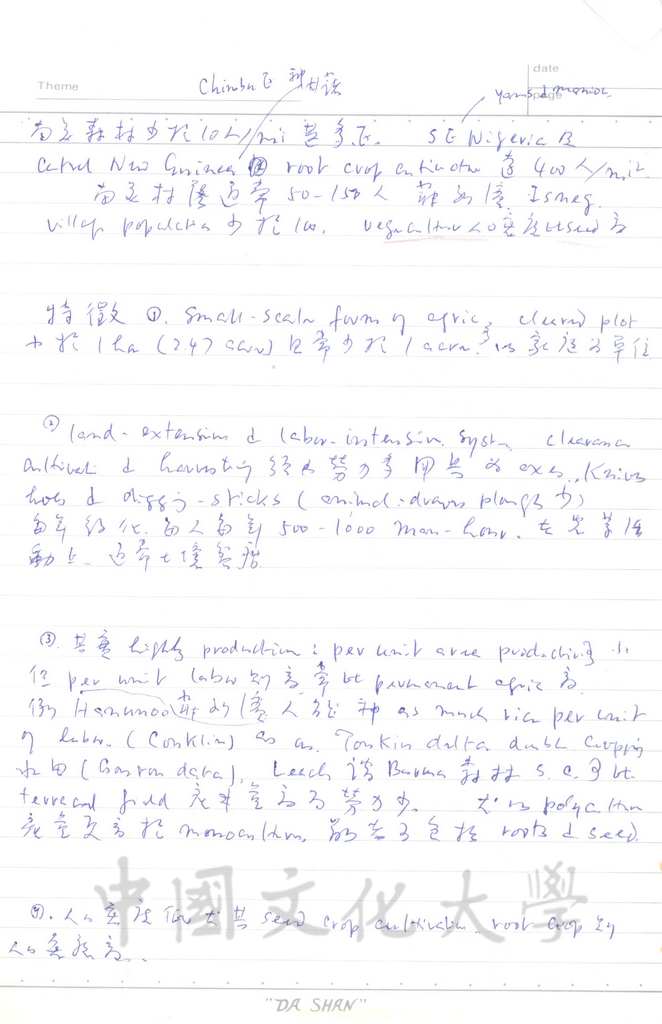 Theme
date
page
Chimbu 區 種甘藷
yams & manioc.
南美森林少於10人/mi 甚多區. SE Nigeria 及
Central New Guinea root crop cultivation 達 400人/mi².
南美村落通常 50-150人 菲 Isneg.
village population 少於 100. vegeculture 人口密度比 seed 高
特徵 ①. Small-scale form of agric, cleared plot
小於 1 ha (2.47 acre) 且常少於 1 acre. 以家庭為單位
② land-extensive & labor-intensive. System clearance
cultivated & harvesting 須勞力多 用具為 axes, knives
hoes & digging-sticks (animal-drawn plough 少)
每年 每人每年 500-1000 man-hour. 在農業活
動上. 通常土壤
③. 其實 highly production: per unit area productivity 小
但 per unit labor 則高 常比 permanent agric 高
例 Hanunoo 菲 人能種 as much rice per unit
of labor. (Conklin) as on Tonkin delta double cropping
水田 (Gourou data), Leach 談 Burma 森林 S.C. 可比
terraced field 產量高 勞力少. 尤以 polyculture
產量更高於 monoculture, 前者可包括 roots & seed.
④. 人口密度低 尤其 seed crop cultivation. root crop 則
人口密較高.
中國文化大學
"DA SHAN"